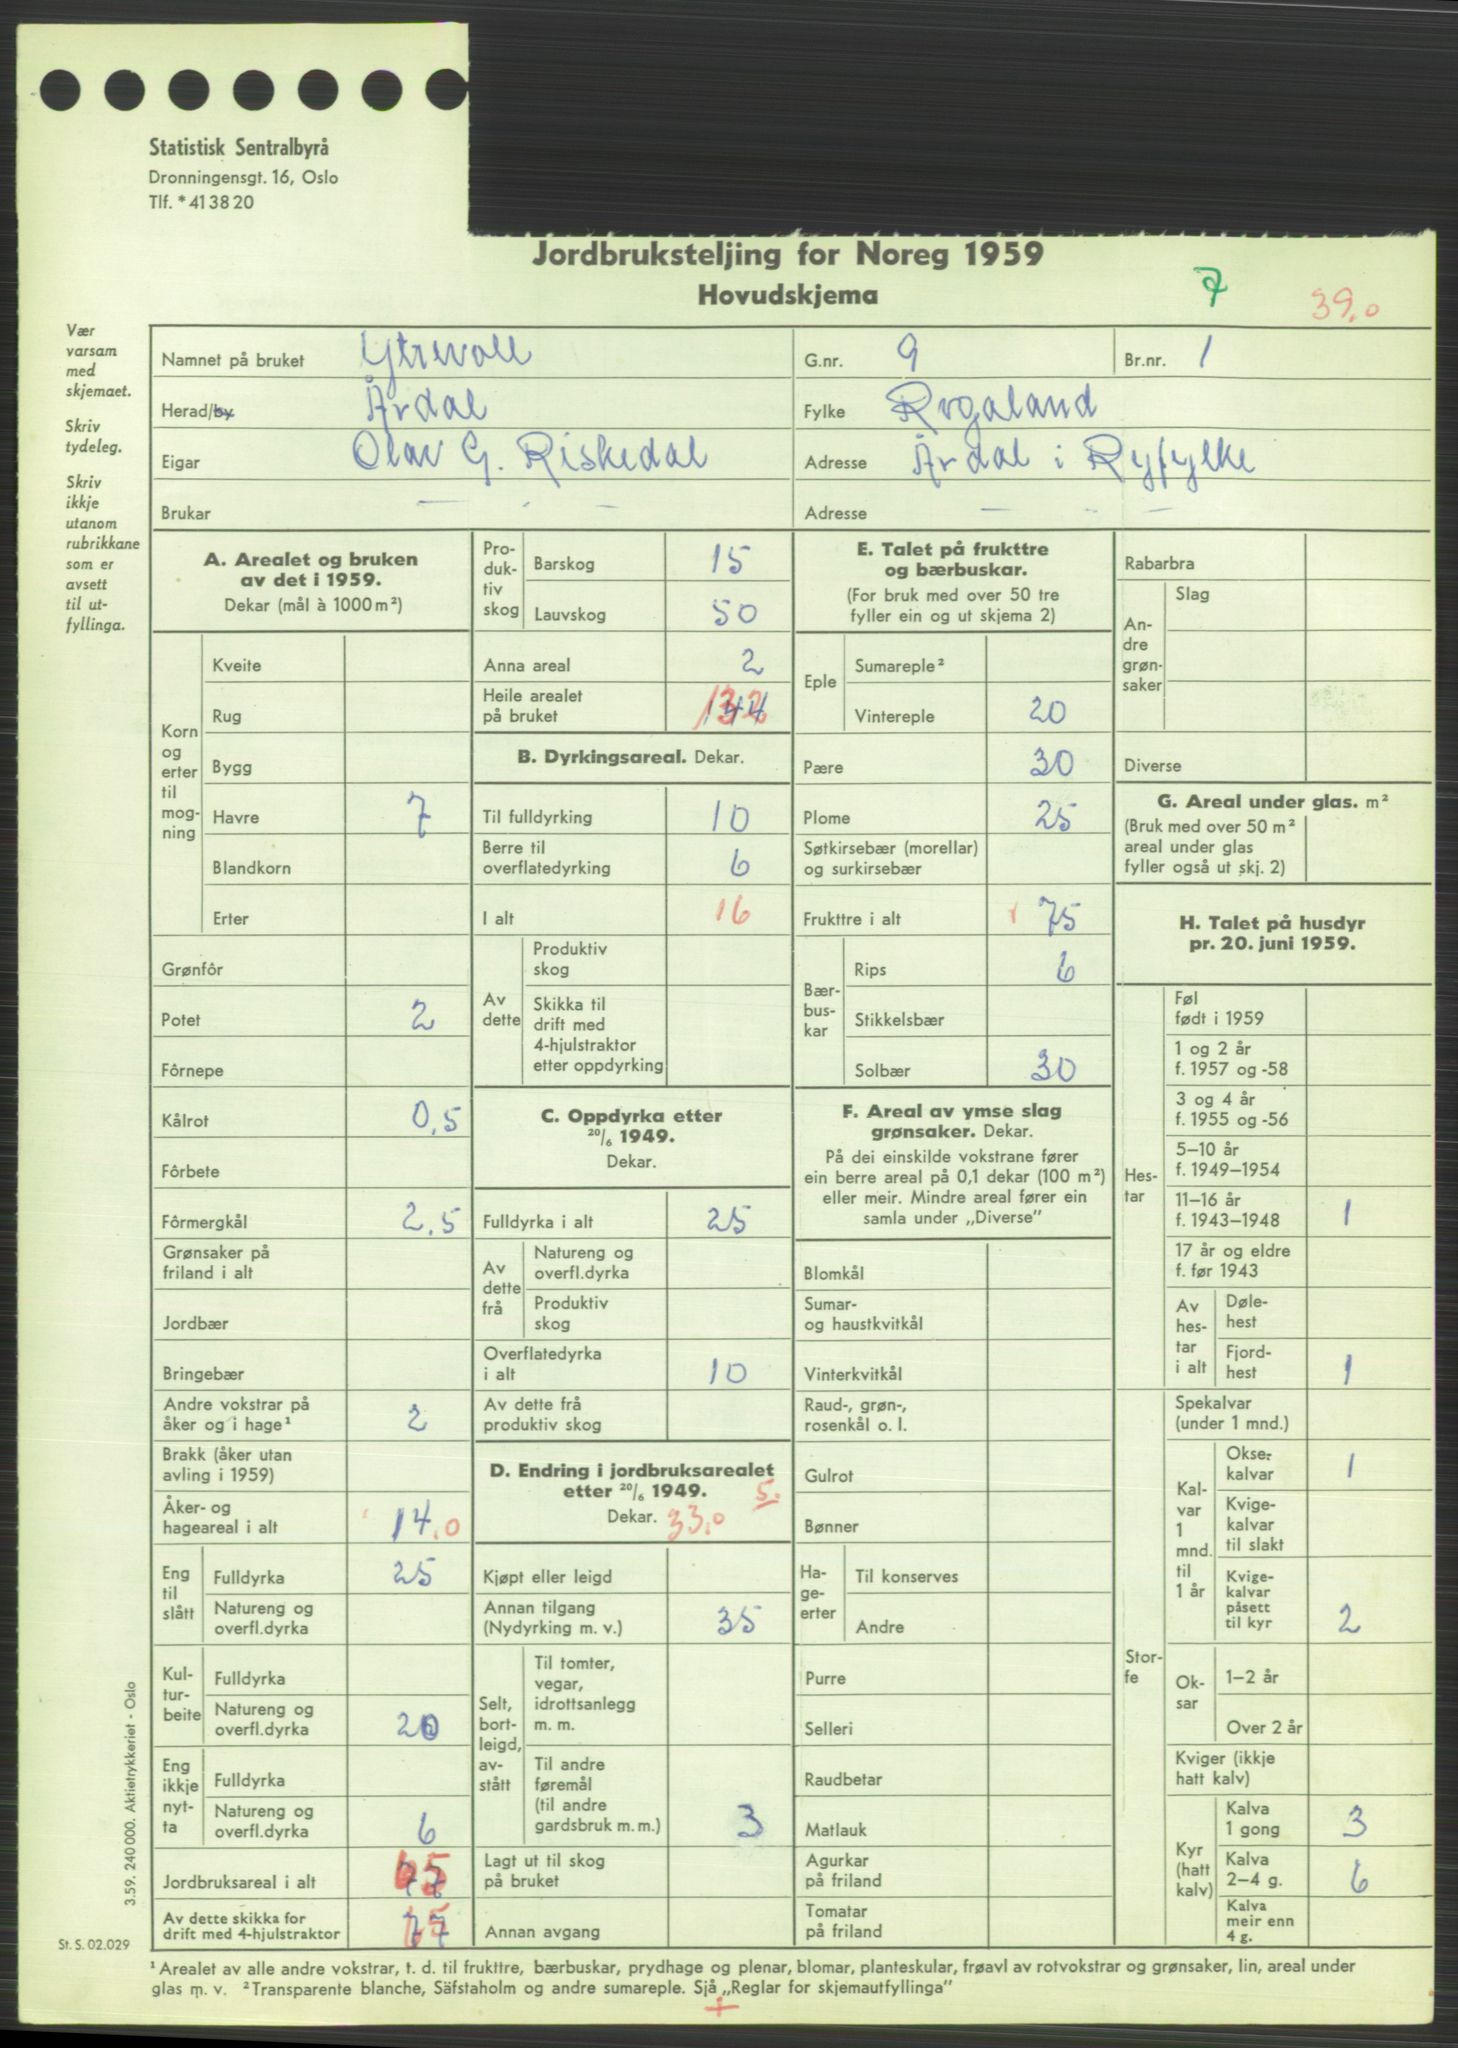 Statistisk Sentralbyrå
Dronningensgt. 16, Oslo
Tlf. * 41 38 20
Jordbruksteljing for Noreg 1959
Hovudskjema
7
39.0
Vær
varsam
med
skjemaet.
Skriv
tydeleg.
Skriv
ikkje
utanom
rubrikkane
som er
avsett
til ut-
fyllinga.
Namnet på bruket Ytrevoll G.nr. 9 Br.nr. 1
Herad/by Årdal Fylke Rogaland
Eigar Olav G. Riskedal Adresse Årdal i Ryfylke
Brukar — " — Adresse — " —
A. Arealet og bruken
av det i 1959.
Dekar (mål à 1000 m²)
Korn
og
erter
til
mog-
ning
Kveite
Rug
Bygg
Havre 7
Blandkorn
Erter
Grønfôr
Potet 2
Fôrnepe
Kålrot 0,5
Fôrbete
Fôrmergkål 2,5
Grønsaker på
friland i alt
Jordbær
Bringebær
Andre vokstrar på
åker og i hage¹ 2
Brakk (åker utan
avling i 1959)
Åker- og
hageareal i alt 14.0
Eng
til
slått
Fulldyrka 25
Natureng og
overfl.dyrka
Kul-
tur-
beite
Fulldyrka
Natureng og
overfl.dyrka 20
Eng
ikkje
nyt-
ta
Fulldyrka
Natureng og
overfl.dyrka 6
Jordbruksareal i alt 77 65
Av dette skikka for
drift med 4-hjulstraktor 77 65
Pro-
duk-
tiv
skog
Barskog 15
Lauvskog 50
Anna areal 2
Heile arealet
på bruket 144 132
B. Dyrkingsareal. Dekar.
Til fulldyrking 10
Berre til
overflatedyrking 6
I alt 16
Av
dette
Produktiv
skog
Skikka til
drift med
4-hjulstraktor
etter oppdyrking
C. Oppdyrka etter
20/6 1949.
Dekar.
Fulldyrka i alt 25
Av
dette
frå
Natureng og
overfl.dyrka
Produktiv
skog
Overflatedyrka
i alt 10
Av dette frå
produktiv skog
D. Endring i jordbruksarealet
etter 20/6 1949. 5.
Dekar. 33.0
Kjøpt eller leigd
Annan tilgang
(Nydyrking m. v.) 35
Selt,
bort-
leigd,
av-
stått
Til tomter,
vegar,
idrottsanlegg
m. m.
Til andre
føremål
(til andre
gardsbruk m. m.) 3
Lagt ut til skog
på bruket
Annan avgang
E. Talet på frukttre
og bærbuskar.
(For bruk med over 50 tre
fyller ein og ut skjema 2)
Eple
Sumareple²
Vintereple 20
Pære 30
Plome 25
Søtkirsebær (morellar)
og surkirsebær
Frukttre i alt 75
Bær-
bus-
kar
Rips 6
Stikkelsbær
Solbær 30
F. Areal av ymse slag
grønsaker. Dekar.
På dei einskilde vokstrane fører
ein berre areal på 0,1 dekar (100 m²)
eller meir. Mindre areal fører ein
samla under „Diverse”
Blomkål
Sumar-
og haustkvitkål
Vinterkvitkål
Raud-, grøn-,
rosenkål o. l.
Gulrot
Bønner
Ha-
ge-
erter
Til konserves
Andre
Purre
Selleri
Raudbetar
Matlauk
Agurkar
på friland
Tomatar
på friland
Rabarbra
An-
dre
grøn-
saker
Slag
Diverse
G. Areal under glas. m²
(Bruk med over 50 m²
areal under glas
fyller også ut skj. 2)
H. Talet på husdyr
pr. 20. juni 1959.
Hes-
tar
Føl
født i 1959
1 og 2 år
f. 1957 og -58
3 og 4 år
f. 1955 og -56
5–10 år
f. 1949–1954
11–16 år
f. 1943–1948 1
17 år og eldre
f. før 1943
Av
hes-
tar
i alt
Døle-
hest
Fjord-
hest 1
Stor-
fe
Spekalvar
(under 1 mnd.)
Kal-
var
1
mnd.
til
1 år
Okse-
kalvar 1
Kvige-
kalvar
til slakt
Kvige-
kalvar
påsett
til kyr 2
Ok-
sar
1–2 år
Over 2 år
Kviger (ikkje
hatt kalv)
Kyr
(hatt
kalv)
Kalva
1 gong 3
Kalva
2–4 g. 6
Kalva
meir enn
4 g.
3.59. 240 000. Aktietrykkeriet - Oslo
St. S. 02.029
¹ Arealet av alle andre vokstrar, t. d. til frukttre, bærbuskar, prydhage og plenar, blomar, planteskular, frøavl av rotvokstrar og grønsaker, lin, areal under
glas m. v. ² Transparente blanche, Säfstaholm og andre sumareple. Sjå „Reglar for skjemautfyllinga”
+